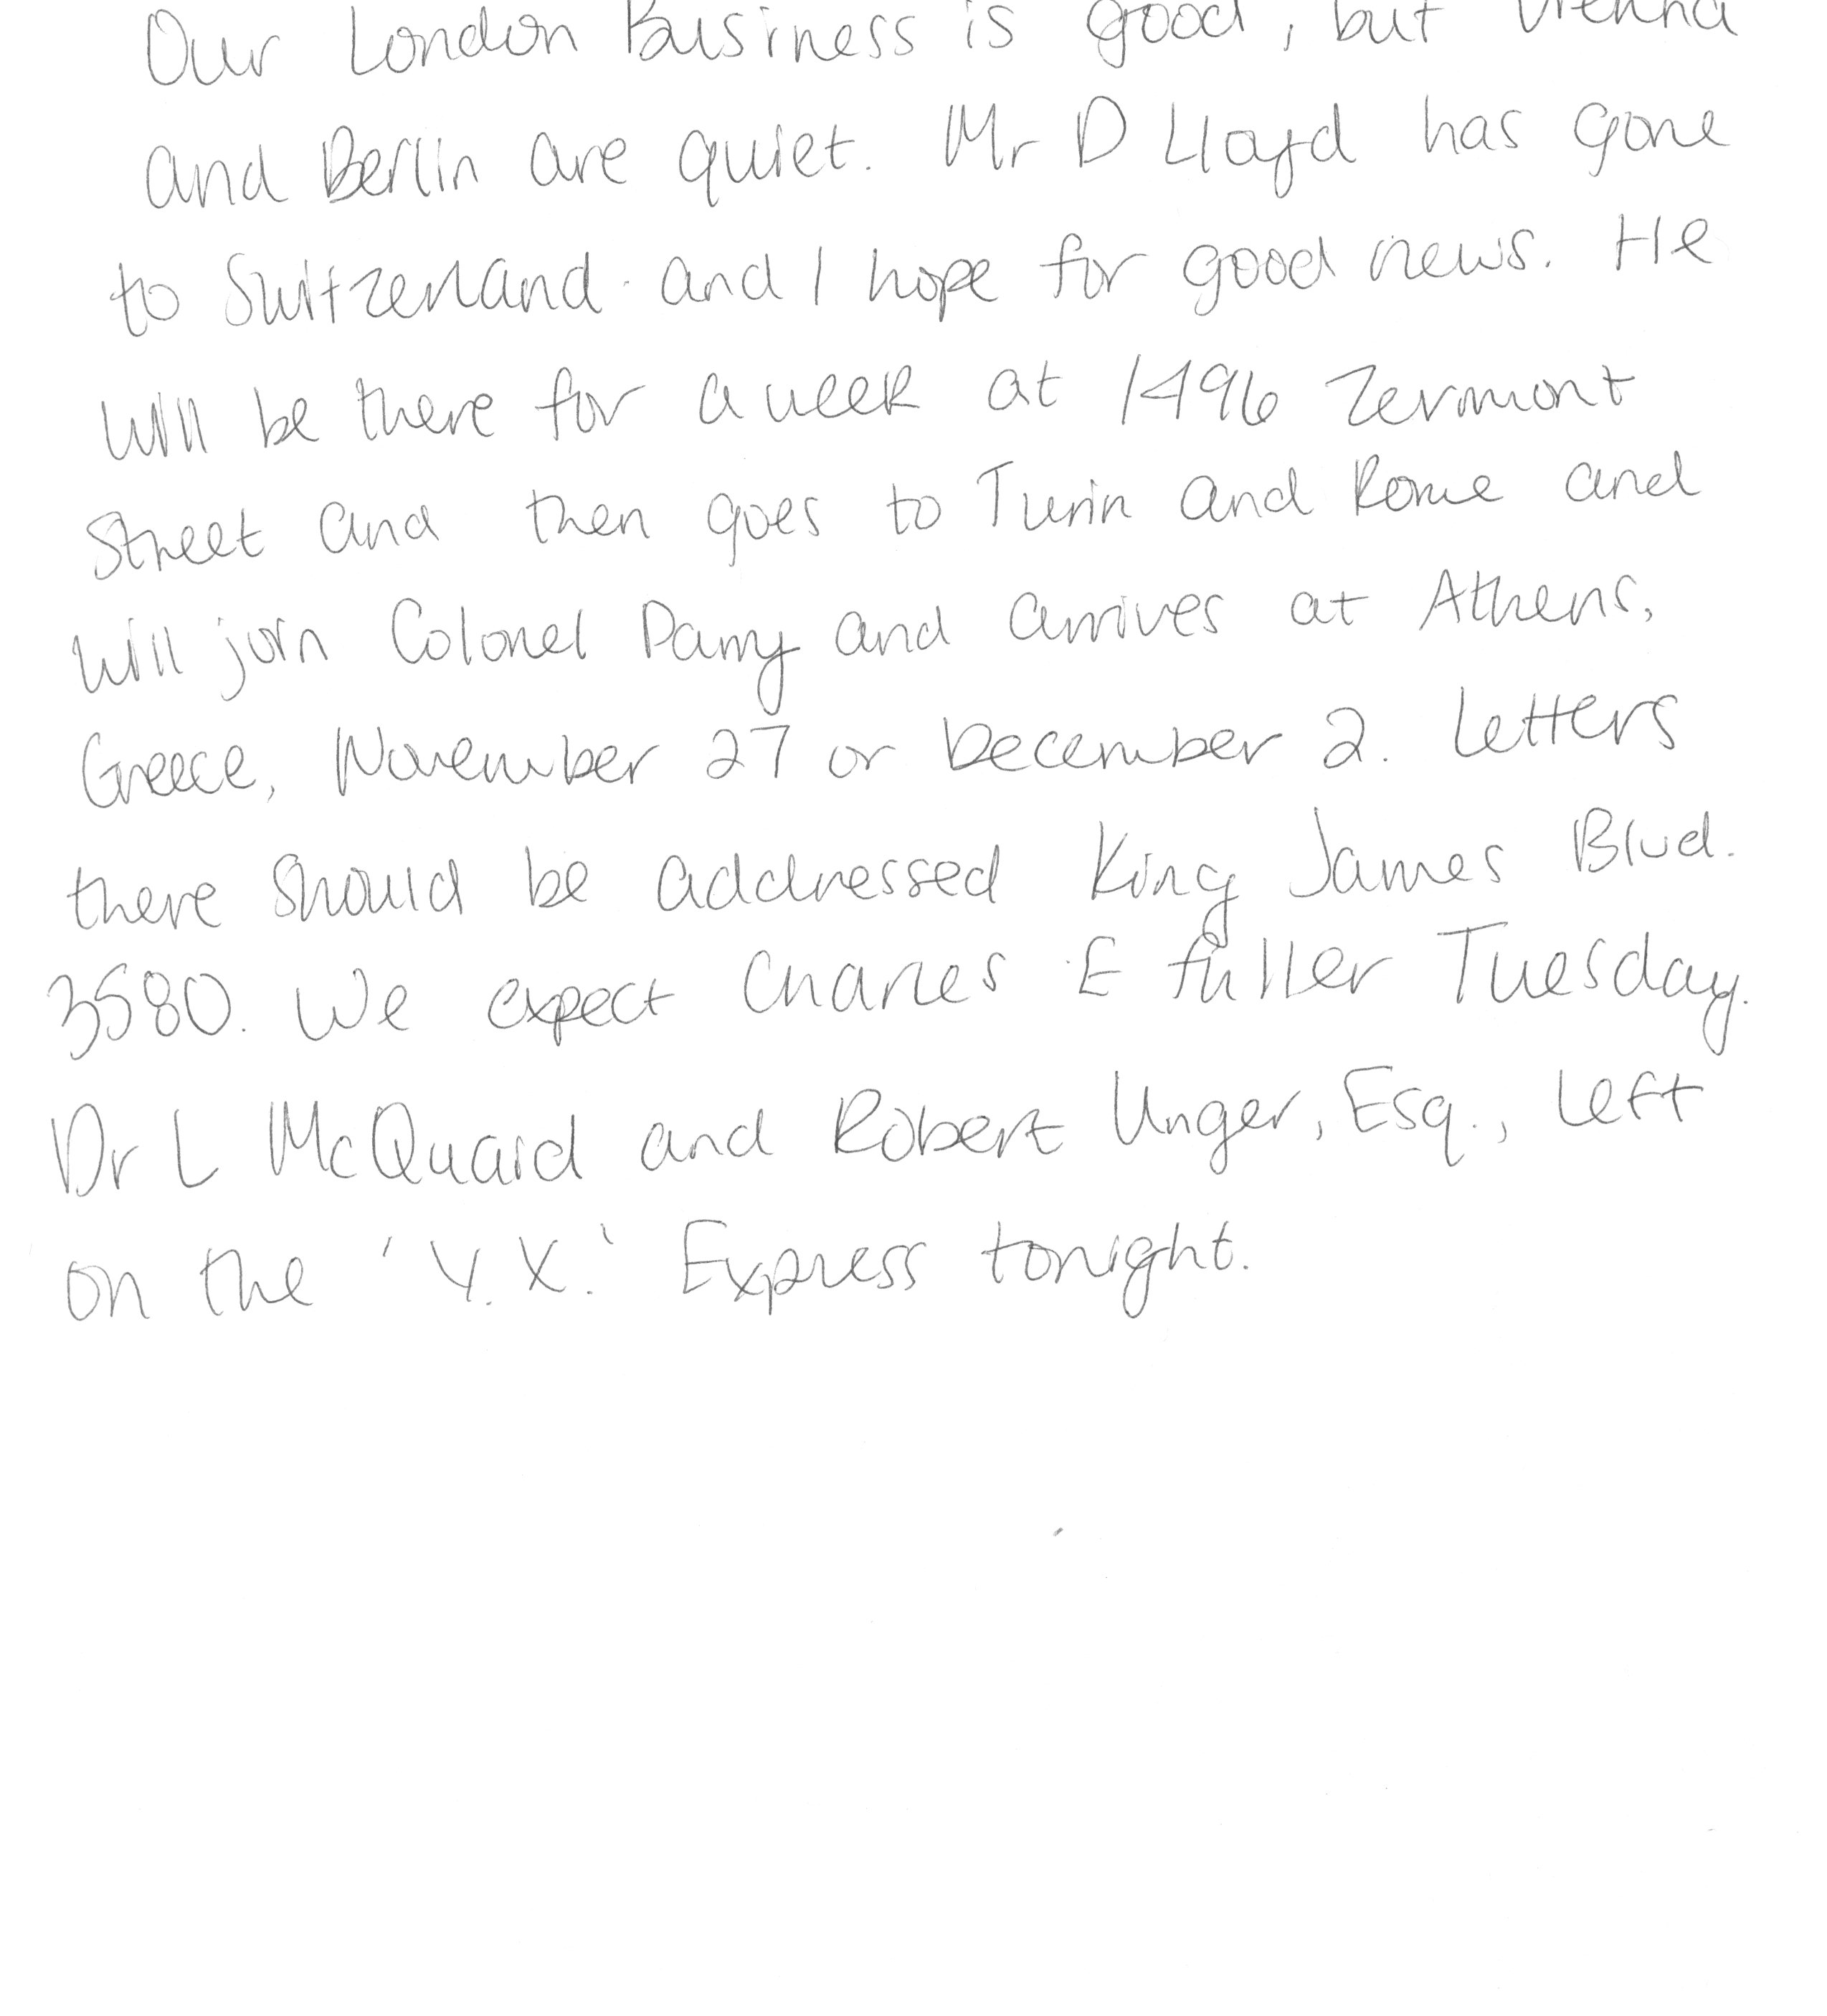 Our London Business is good, but Vienna
and Berlin are quiet. Mr D Lloyd has gone
to Switzerland and I hope for good news. He
will be there for a week at 1496 Zermont
Street and then goes to Turin and Rome and
will join Colonel Parry and arrives at Athens,
Greece, November 27 or December 2. Letters
there should be addressed King James Blvd.
3580. We expect Charles E Fuller Tuesday.
Dr L McQuaid and Robert Unger, Esq., left
on the 'Y.X.' Express tonight.